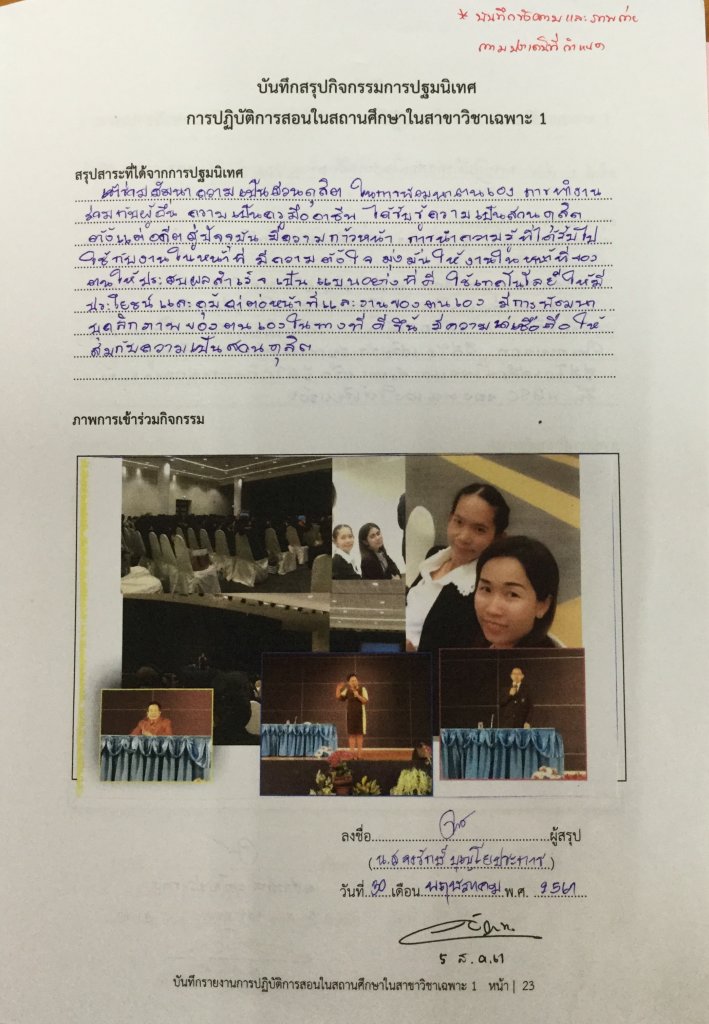 * บันทึกข้อความและภาพถ่าย
ตามประเด็นที่กำหนด
บันทึกสรุปกิจกรรมการปฐมนิเทศ
การปฏิบัติการสอนในสถานศึกษาในสาขาวิชาเฉพาะ 1
สรุปสาระที่ได้จากการปฐมนิเทศ
เข้าร่วมสัมมนา ความเป็นสวนดุสิต ในการพัฒนาตนเอง การทำงาน
ร่วมกับผู้อื่น ความเป็นครูมืออาชีพ ได้รับรู้ความเป็นสวนดุสิต
ตั้งแต่อดีตสู่ปัจจุบัน มีความก้าวหน้า การนำความรู้ที่ได้รับไป
ใช้กับงานในหน้าที่ มีความตั้งใจ มุ่งมั่นให้งานในหน้าที่ของ
ตนให้ประสบผลสำเร็จ เป็นแบบอย่างที่ดี ใช้เทคโนโลยีให้มี
ประโยชน์ และคุ้มค่าต่อหน้าที่และงานของตนเอง มีการพัฒนา
บุคลิกภาพของตนเองในทางที่ดีขึ้น มีความน่าเชื่อถือให้
สมกับความเป็นสวนดุสิต
ภาพการเข้าร่วมกิจกรรม
ลงชื่อ ผู้สรุป
(น.ส. บุญโยประการ)
วันที่ 30 เดือน พฤษภาคม พ.ศ. 2561
5 ส.ค. 61
บันทึกรายงานการปฏิบัติการสอนในสถานศึกษาในสาขาวิชาเฉพาะ 1 หน้า | 23